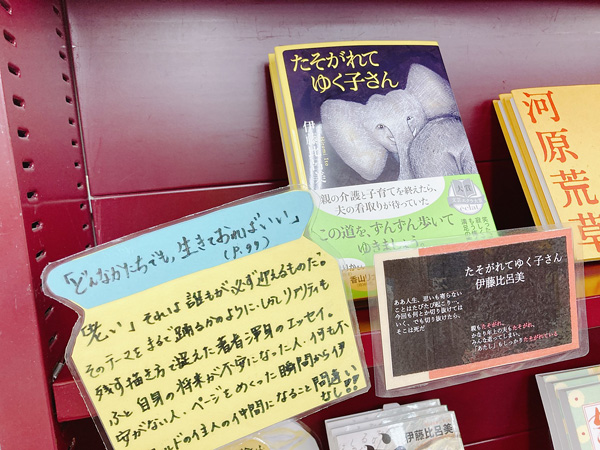 たそがれて
ゆく子さん
伊
親の介護と子育てを終えたら、
夫の看取りが待っていた
この道を、ずんずん歩いて
ゆきましょう。
河原荒草
「どんなかたちでも、生きておればいい」
(P.99)
「老い」それは誰もが必ず迎えるものだ。
そのテーマをまるで踊るかのように、しかしリアリティも
残す描き方で迎えた著者渾身のエッセイ。
ふと自身の将来が不安になった人、何も不
安がない人、ページをめくった瞬間から伊
ワールドの住人の仲間になること間違い
なし!!
たそがれてゆく子さん
伊藤比呂美
ああ人生、思いも寄らない
ことはたびたび起こり…。
今回も何とか切り抜けては
いく、でも切り抜けたら、
そこは死だ
親もたそがれ、
かなり年上の夫もたそがれ、
みんな逝ってしまい、
「あたし」もしっかりたそがれている
伊藤比呂美